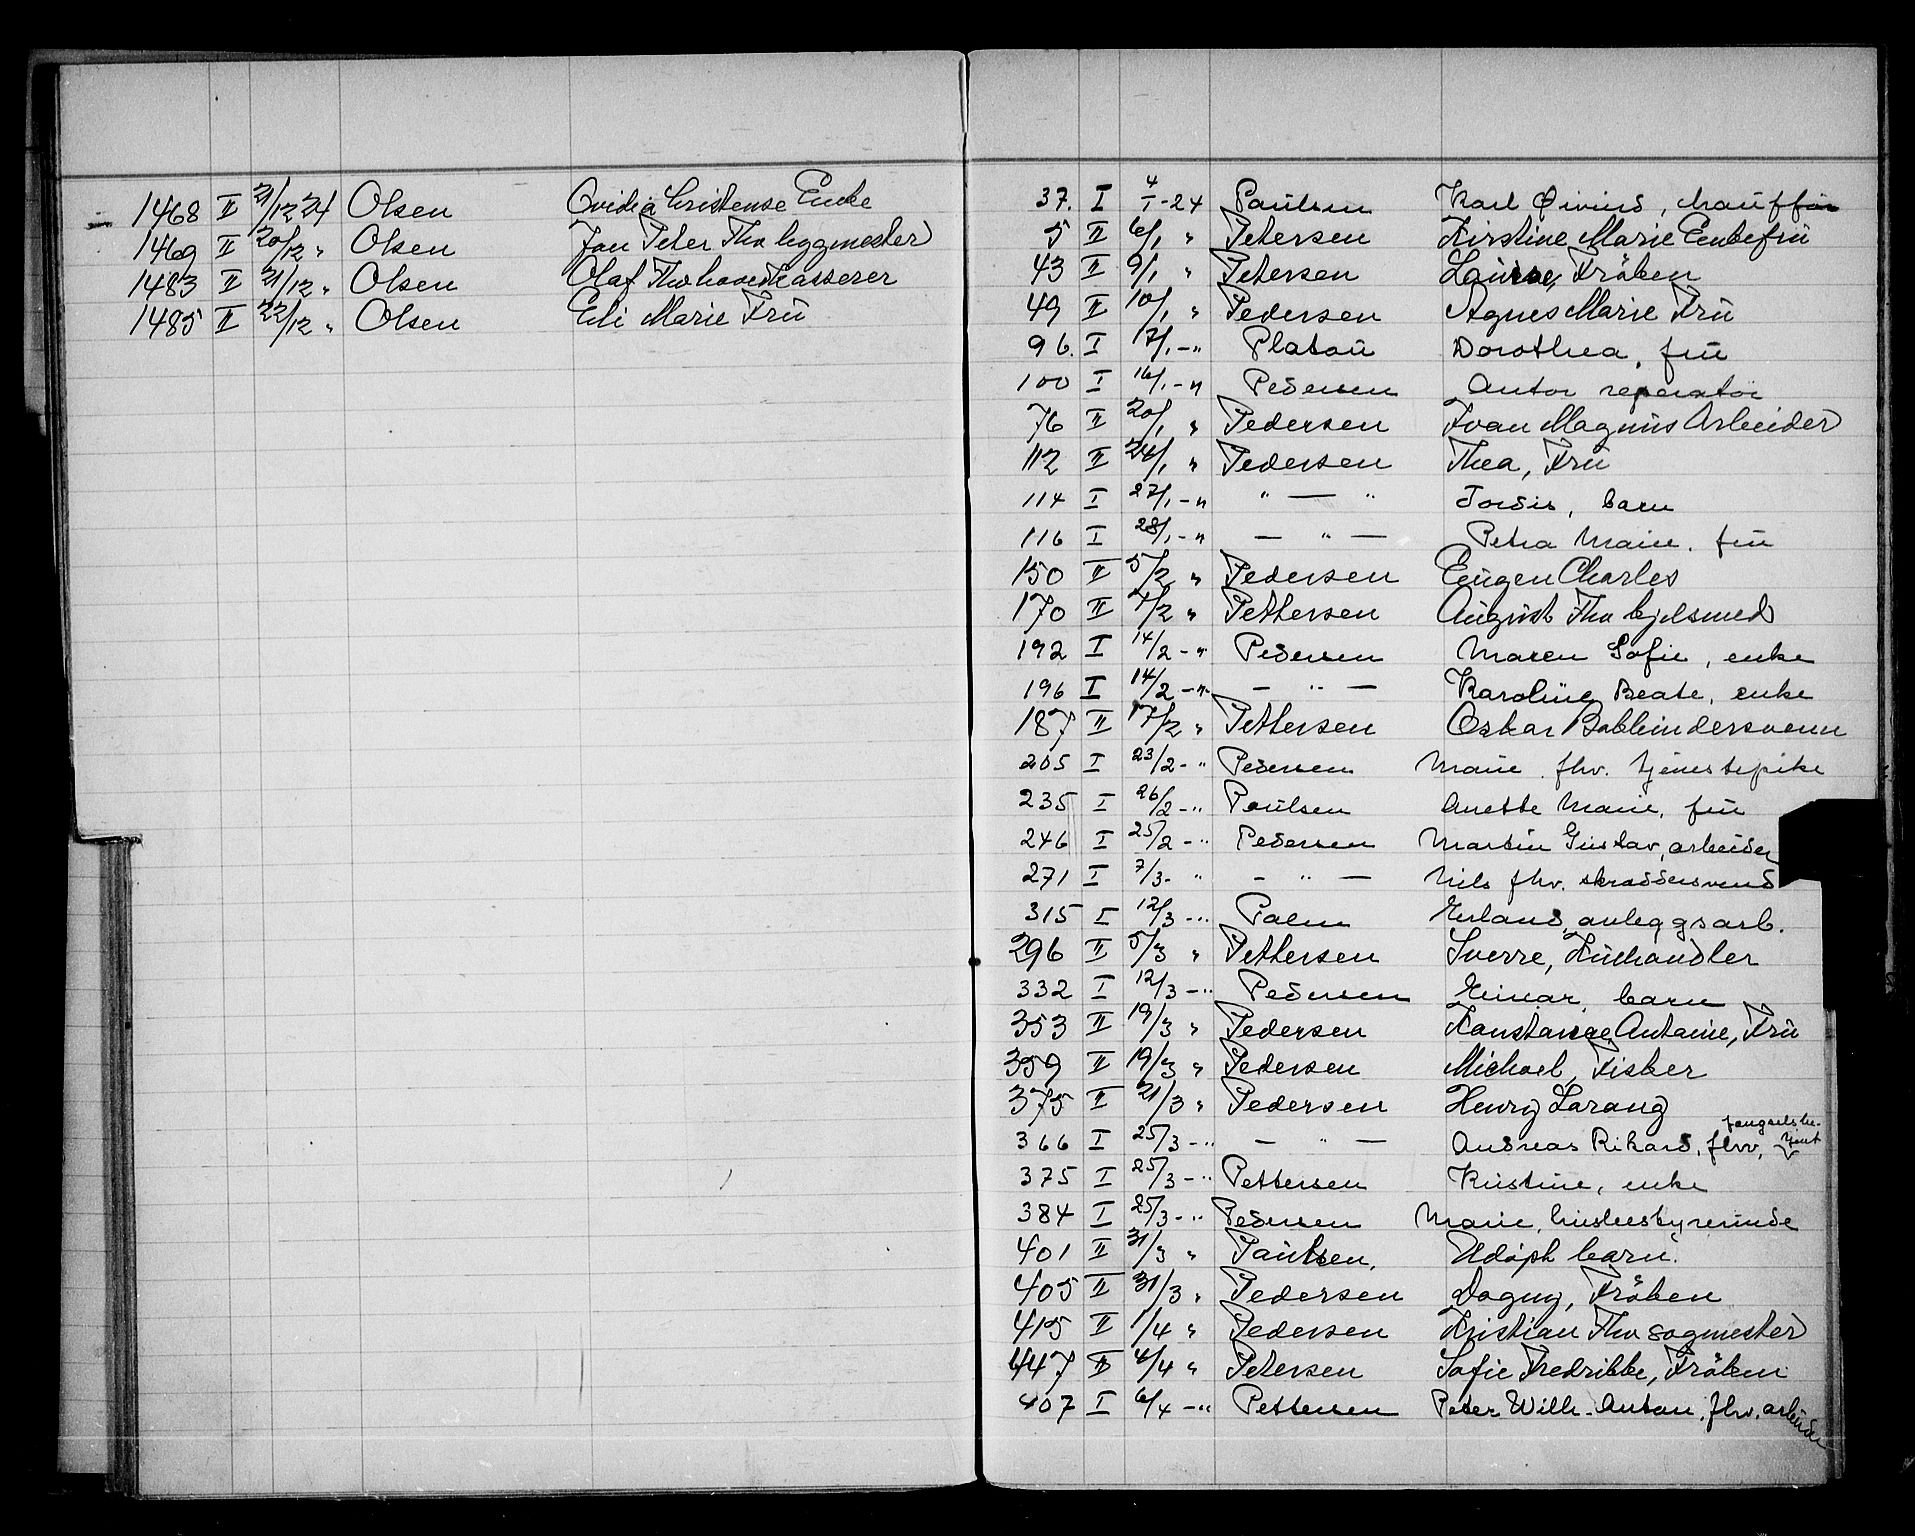 1468 II 21/12 24 Olsen Ovidia Cristense Enke
1469 II 20/12 " Olsen Jan Peter Fhv byggmester
1483 II 21/12 " Olsen Olaf Fhv hovedkasserer
1485 II 22/12 " Olsen Eli Marie Frü
37. I 4/1-24 Paulsen Karl Øivind, chauffør
5 II 6/1 " Petersen Kirstine Marie Enkefrü
43 II 9/1 " Petersen Laura, Frøken
49 II 10/1 " Pedersen Agnes Marie Frü
96. I 17/1 -" Platoü Dorothea, frü
100 I 16/1 -" Pedersen Anton reperatør
76 II 20/1 " Pedersen Ivan Magnus Arbeider
112 II 24/1 " Pedersen Thea, Frü
114 I 27/1 -" " — " Tordis, barn
116 I 28/1 -" — " — Petra Marie, frü
150 II 5/2 " Pedersen Eugen Charles
170 II 7/2 " Pettersen August Fhv hjulsmed
192 I 14/2 -" Pedersen Maren Sofie, enke
196 I 14/2 -" — " — Karoline Beate, enke
187 II 17/2 " Pettersen Oskar Bokbindersvenn
205 I 23/2 -" Pedersen Marie, fhv. tjenestepike
235 I 26/2 -" Paulsen Anette Marie, frü
246 I 25/2 -" Pedersen Martin Gustav, arbeider
271 I 7/3 - " — " — Nils fhv. skreddersvend
315 I 12/3 -" Palm Erland, anleggsarb.
296 II 5/3 " Pettersen Sverre,
332 I 12/3 -" Pedersen Einar, barn
353 II 19/3 " Pedersen Konstance Antonie, Frü
359 II 19/3 " Pedersen Michael, Fisker
375 II 21/3 " Pedersen Henry
366 I 25/3 -" — " — Andreas Rikard, fhv. fengselsbetjent
375 I 25/3 -" Pettersen Kristine, enke
384 I 25/3 -" Pedersen Marie, husbestyrerinde
401 II 31/3 " Paulsen, Udøpt barn.
405 II 31/3 " Pedersen Dagny, Frøken
415 II 1/4 " Pedersen Kristian Fhv sagmester
447 II 4/4 " Petersen Sofie Fredrikke, Frøken
407 I 6/4 -" Pettersen Peter Wilh. Anton, fhv. arbeider